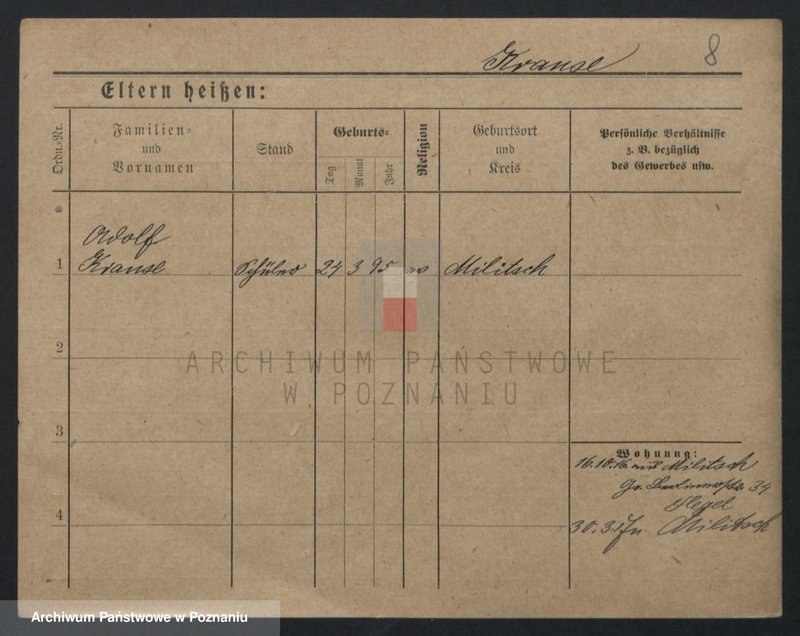 Krause
8
Eltern heißen:
Ordn.-Nr.
Familien-
und
Vornamen
Stand
Geburts-
Tag
Monat
Jahr
Religion
Geburtsort
und
Kreis
Persönliche Verhältnisse
z. B. bezüglich
des Gewerbes usw.
Adolf
1 Krause Schüler 24 3 95 Militsch
2
ARCHIWUM PAŃSTWOWE
W POZNANIU
3
Wohnung:
16.10. aus Militsch
Gr. 34
4
30.3. Militsch
Archiwum Państwowe w Poznaniu